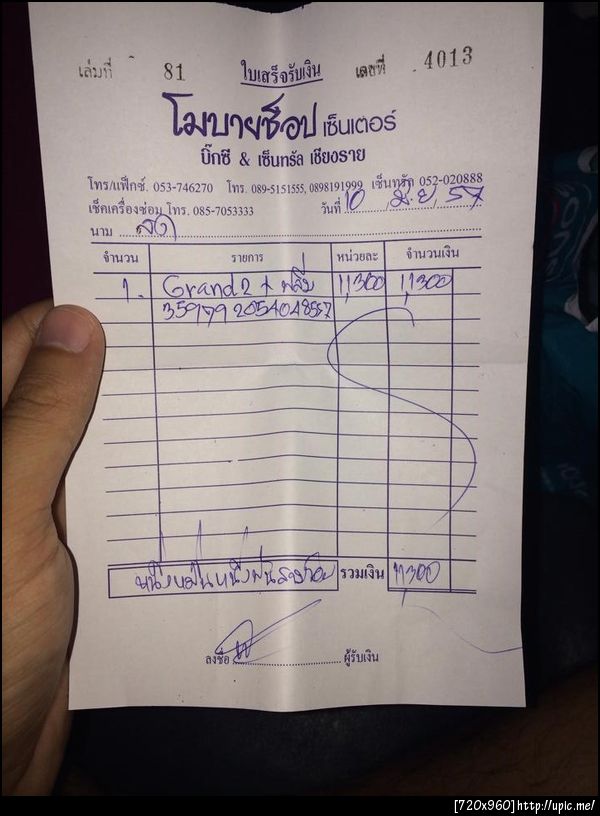 เล่มที่ 81 ใบเสร็จรับเงิน เลขที่ 4013
โมบายช็อป เซ็นเตอร์
บิ๊กซี & เซ็นทรัล เชียงราย
โทร/แฟ็กซ์. 053-746270 โทร. 089-5151555, 0898191999 เซ็นทรัล 052-020888
เช็คเครื่องซ่อม โทร. 085-7053333 วันที่ 10 มิ.ย. 57
นาม สด
จำนวน รายการ หน่วยละ จำนวนเงิน
1. Grand 2 + ฟิล์ม 11,300 11,300
หนึ่งหมื่นหนึ่งพันสามร้อย รวมเงิน 11,300
ลงชื่อ ผู้รับเงิน
[720x960]http://upic.me/